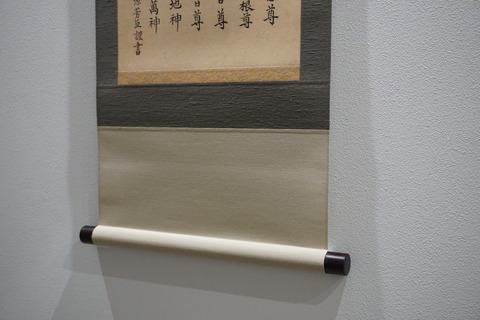 尊
根尊
尊
尊
地神
萬神
芳臣謹書